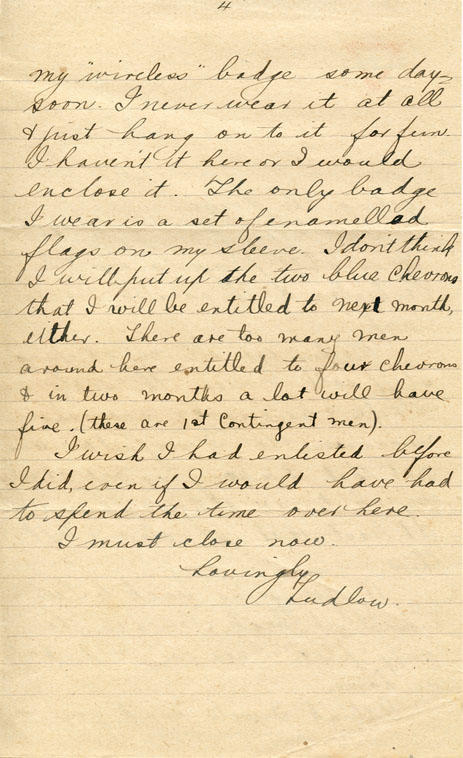 4
my "wireless" badge some day
soon. I never wear it at all
& just hang on to it for fun.
I haven't it here or I would
enclose it. The only badge
I wear is a set of enamelled
flags on my sleeve. I don't think
I will put up the two blue chevrons
that I will be entitled to next month,
either. There are too many men
around here entitled to four chevrons
& in two months a lot will have
five. (these are 1st Contingent men).
I wish I had enlisted before
I did, even if I would have had
to spend the time over here.
I must close now.
Lovingly
Ludlow.